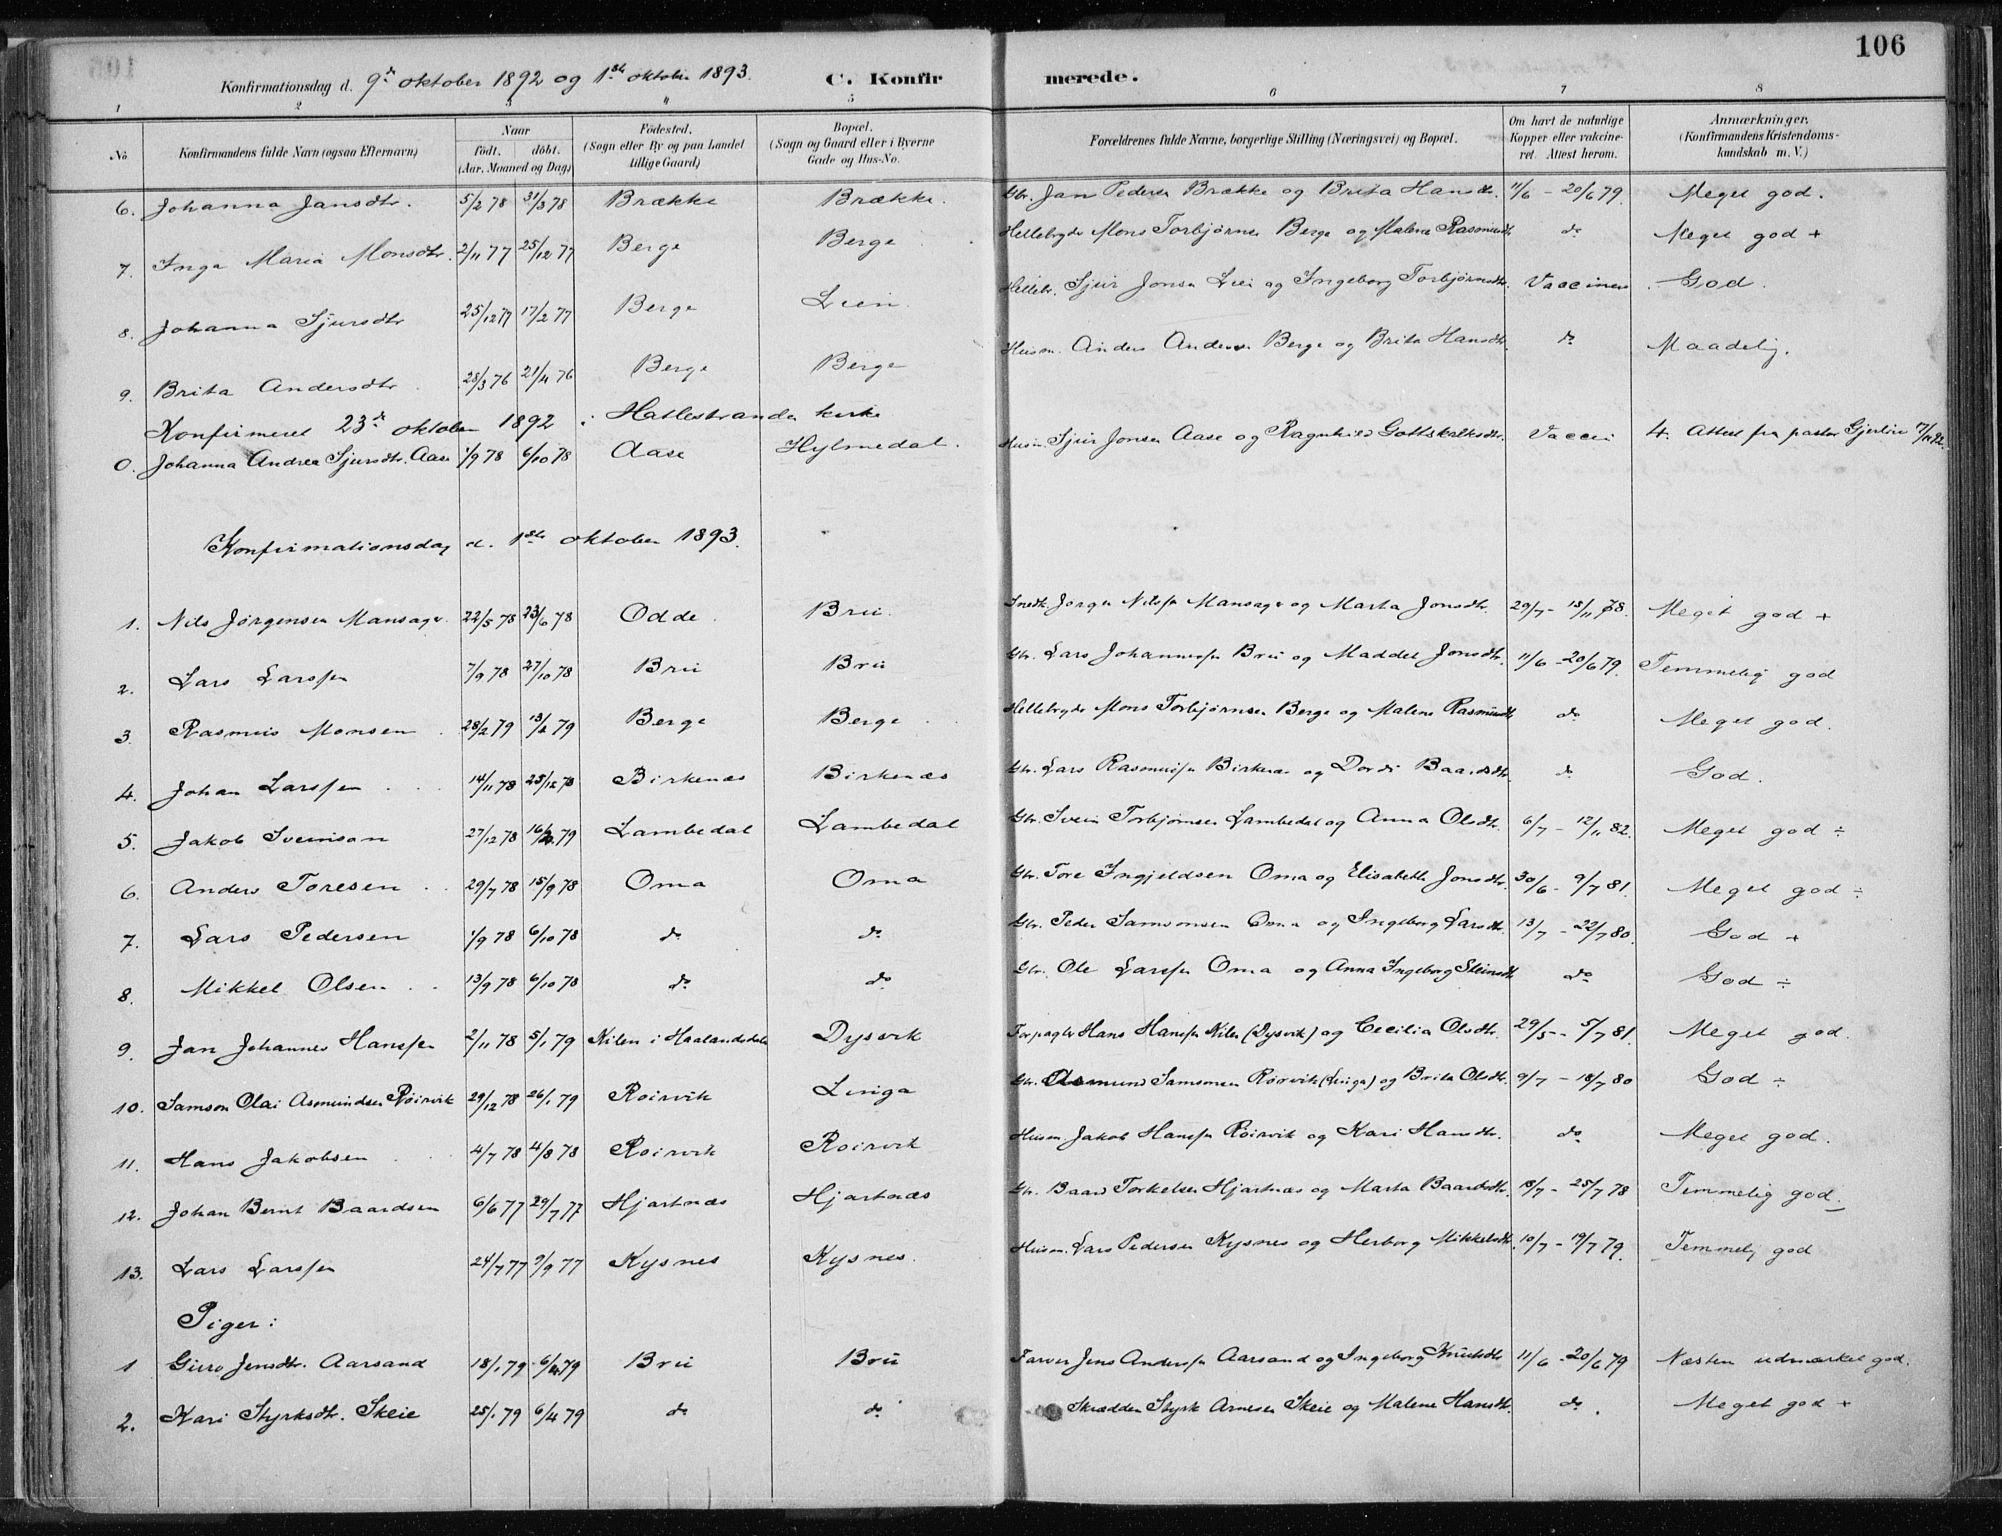 106
Konfirmationsdag d. 9de oktober 1892 og 1ste oktober 1893. C. Konfirmerede.
1 2 3 4 5 6 7 8
No Konfirmandens fulde Navn (ogsaa Efternavn) Naar født. døbt. (Aar, Maaned og Dag) Fødested. (Sogn eller By og paa Landet tillige Gaard) Bopæl. (Sogn og Gaard eller i Byerne Gade og Hus-No. Forældrenes fulde Navne, borgerlige Stilling (Næringsvei) og Bopæl. Om havt de naturlige Kopper eller vakcineret. Attest herom. Anmærkninger. (Konfirmandens Kristendomskundskab m. V.)
6. Johanna Jansdtr. 5/2 78 31/3 78 Brække Brække. Gbr. Jan Pedersen Brække og Brita Hansdtr. 11/6 - 20/6 79. Meget god.
7. Inga Maria Monsdtr. 2/11 77 25/12 77 Berge Berge Hellebryder Mons Torbjørnsen Berge og Malene Rasmusdtr do Meget god +
8. Johanna Sjursdtr 25/12 77 17/2 77 Berge Lien Hellebr. Sjur Jonsen Lien og Ingeborg Torbjørnsdtr. Vaccineret God.
9. Brita Andersdtr 28/3 76 21/4 76 Berge Berge Husm. Anders Andersen Berge og Brita Hansdtr. do Maadelig.
Konfirmeret 23de oktober 1892 i Hatlestranden kirke
0. Johanna Andrea Sjursdtr. Aase 1/9 78 6/10 78 Aase Hylmedal. Husm. Sjur Jonsen Aase og Ragnhild Gottskalksdtr. Vaccin 4. Attest fra pastor
Konfirmationsdag d. 1ste oktober 1893.
1. Nils Jørgensen Mansager 22/5 78 23/6 78 Odde Brei Snedk. Jørgen Nilsen Mansager og Marta Jonsdtr. 29/7 - 18/11 78. Meget god +
2. Lars Larssen 7/9 78 27/10 78 Brei Brei Gbr. Lars Johannessen Brei og Maddel Jonsdtr. 11/6 - 20/6 79. Temmelig god
3. Rasmus Monsen 28/2 79 13/4 79 Berge Berge Hellebryder Mons Torbjørnsen Berge og Malene Rasmusdtr do Meget god.
4. Johan Larssen 14/11 78 25/12 78 Birkenæs Birkenæs Gbr. Lars Rasmussen Birkenæs og Dordi Baardsdtr. do God.
5. Jakob Sveinson 27/12 78 16/2 79 Lambedal Lambedal Gbr. Svein Torbjørnsen Lambedal og Anna Olsdtr. 6/7 - 12/11 82. Meget god ÷
6. Anders Toresen 29/7 78 15/9 78 Oma Oma Gbr. Tore Ingjeldsen Oma og Elisabeth Jonsdtr. 30/6 - 9/7 81. Meget god ÷
7. Lars Pedersen 1/9 78 6/10 78 do do Gbr. Peder Samsonsen Oma og Ingeborg Larsdtr. 13/7 - 22/7 80. God +
8. Mikkel Olsen 13/9 78 6/10 78 do do Gbr. Ole Larssen Oma og Anna Ingeborg Steinsdtr do God ÷
9. Jan Johannes Hanssen 2/11 78 5/1 79 Nilen i Haalandsdalen Dysvik Forpagter Hans Hanssen Nilen (Dysvik) og Cecilia Olsdtr. 29/5 - 5/7 81. Meget god.
10. Samson Olai Asmundsen Røirvik 29/12 78 26/1 79 Roirvik Linga Gbr. Asmund Samsonsen Rørvik (Linga) og Brita Olsdtr. 9/7 - 18/7 80 God ÷
11. Hans Jakobsen 4/7 78 4/8 78 Roirvik Roirvik Husm Jakob Hanssen Røirvik og Kari Hansdtr. do Meget god.
12. Johan Bernt Baardsen 6/6 77 29/7 77 Hjartnæs Hjartnæs Gbr. Baard Torkelsen Hjartnæs og Marta Baardsdtr. 18/7 - 25/7 78 Temmelig god.
13. Lars Larssen 24/7 77 9/9 77 Kysnes Kysnes. Husm. Lars Pedersen Kysnes og Herborg Mikkelsdtr. 10/7 - 19/7 79. Temmelig god
Piger:
1 Giero Jensdtr. Aarsand 18/1 79 6/4 79 Brei Brei Farver Jens Anderssen Aarsand og Ingeborg Knutsdtr 11/6 - 20/6 79 Næsten udmærket god.
2. Kari Styrksdtr. Skeie 25/1 79 6/4 79 do do Skrædder Styrk Arnesen Skeie og Malene Hansdtr. do. Meget god +